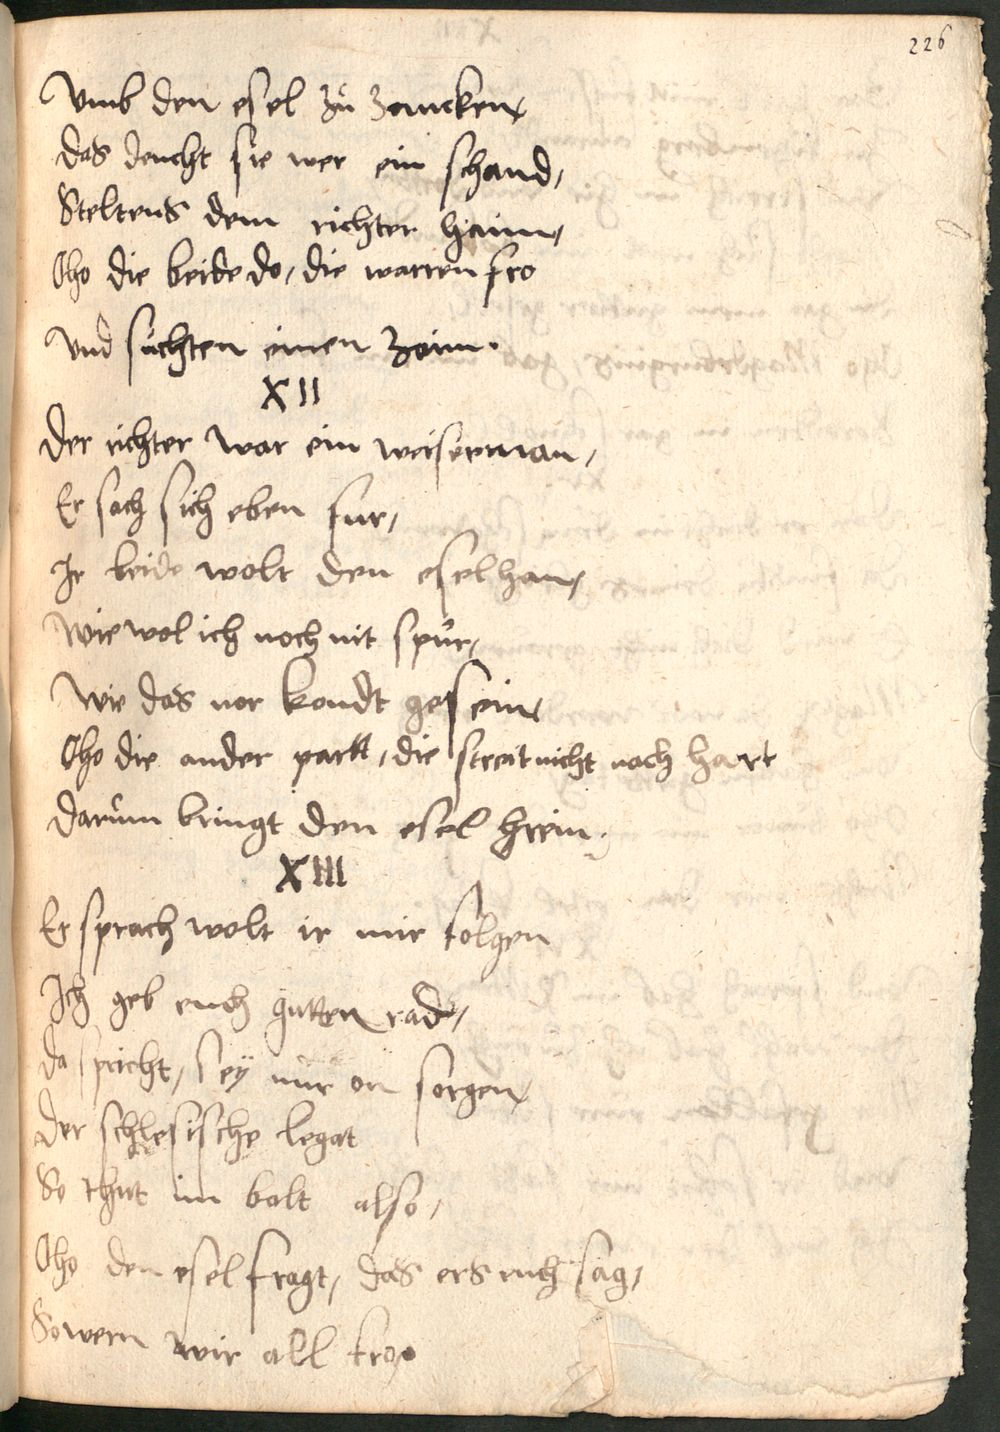 226
Vmb den esel zu zancken,
das deucht sie wer ein schand,
Steltens dem richter haim,
Oho die beide do, die warren fro
Vnd suchten einen zaim.
XII
Der richter war ein weiserman,
Er sach sich eben fur,
Ir beide wolt den esel han,
Wie wol ich noch nit spür,
Wie das nor kondt gesein,
Oho die ander partt, die streit nicht noch hart
Darum bringt den esel hrein.
XIII
Er sprach wolt ir mir folgen
Ich geb euch gutten rad,
Da spricht, sey nur on sorgen,
Der schlesische legat
So thut im balt also,
Oho den esel fragt, das ers euch sag,
So wern wir all fro.